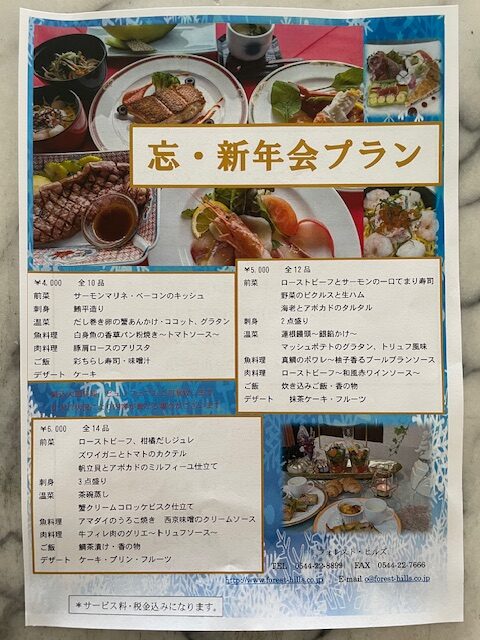 忘・新年会プラン
¥4,000　全10品
前菜　サーモンマリネ・ベーコンのキッシュ
刺身　鮪平造り
温菜　だし巻き卵の蟹あんかけ・ココット、グラタン
魚料理　白身魚の香草パン粉焼き～トマトソース～
肉料理　豚肩ロースのアリスタ
ご飯　彩ちらし寿司・味噌汁
デザート　ケーキ
¥5,000　全12品
前菜　ローストビーフとサーモンの一口てまり寿司
野菜のピクルスと生ハム
海老とアボカドのタルタル
刺身　2点盛り
温菜　蓮根饅頭～銀餡かけ～
マッシュポテトのグラタン、トリュフ風味
魚料理　真鯛のポワレ～柚子香るブールブランソース
肉料理　ローストビーフ～和風赤ワインソース～
ご飯　炊き込みご飯・香の物
デザート　抹茶ケーキ・フルーツ
¥6,000　全14品
前菜　ローストビーフ、柑橘だしジュレ
ズワイガニとトマトのカクテル
帆立貝とアボカドのミルフィーユ仕立て
刺身　3点盛り
温菜　茶碗蒸し
蟹クリームコロッケビスク仕立て
魚料理　アマダイのうろこ焼き　西京味噌のクリームソース
肉料理　牛フィレ肉のグリエ～トリュフソース～
ご飯　鯛茶漬け・香の物
デザート　ケーキ・プリン・フルーツ
フォレスト・ヒルズ
TEL　0544-22-8899　FAX　0544-22-7666
http://www.forest-hills.co.jp　E-mail o@forest-hills.co.jp
＊サービス料・税金込みになります。